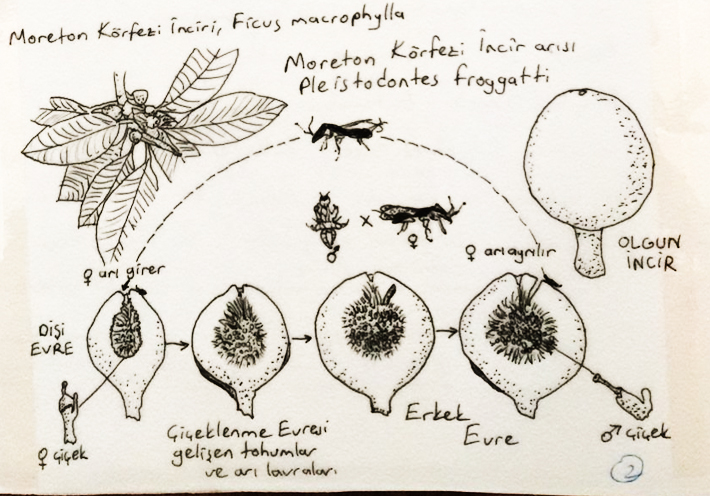 Moreton Körfezi İnciri, Ficus macrophylla
Moreton Körfezi İncir arısı
Pleistodontes froggatti
♂ x ♀
OLGUN
İNCİR
♀ arı girer
♀ arı ayrılır
DİŞİ
EVRE
♀ çiçek
Çiçeklenme Evresi
gelişen tohumlar
ve arı lavraları
Erkek
Evre
♂ çiçek
2